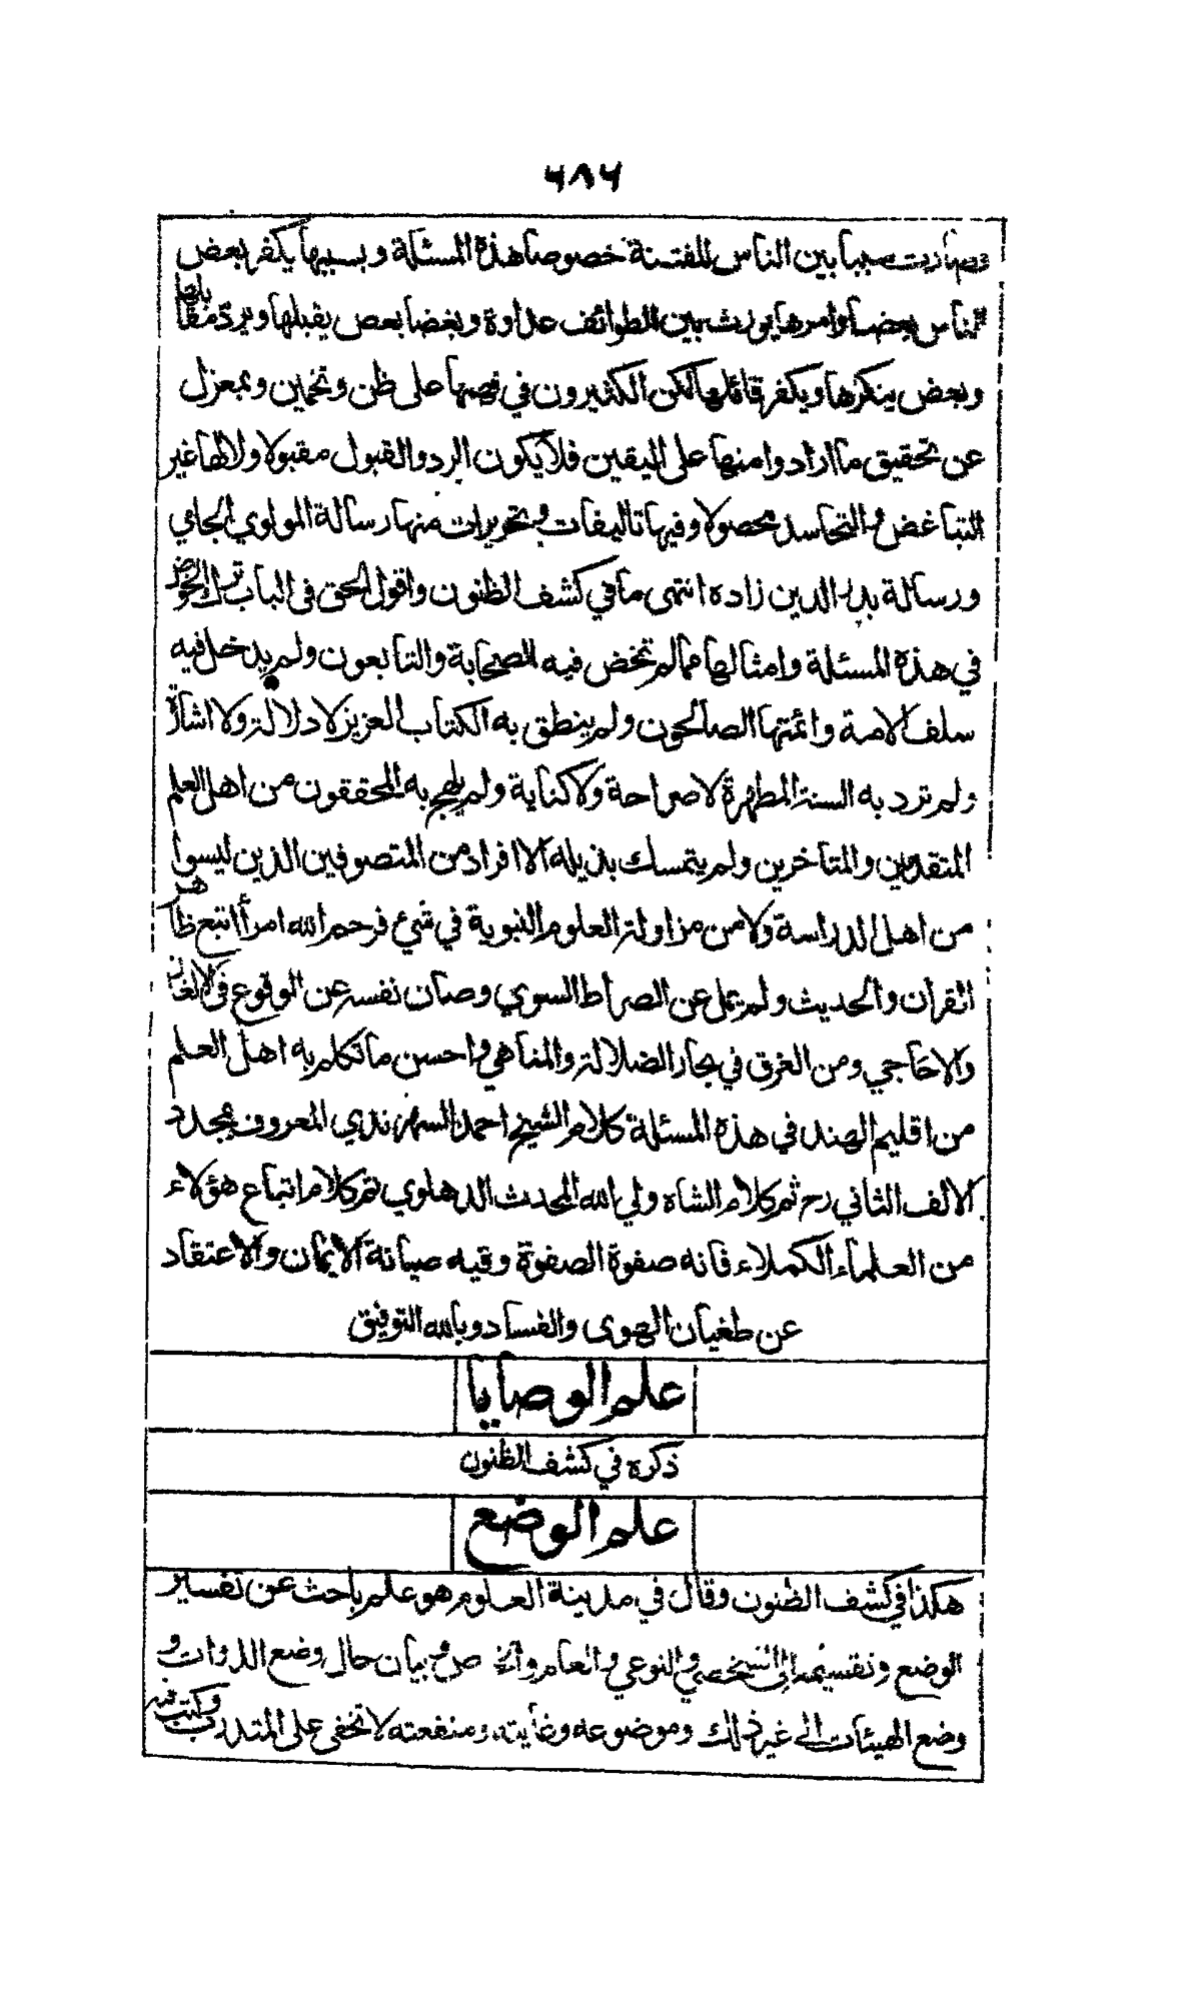 ٦٨٦
وصارت سببا بين الناس للفتنة خصوصا هذه المسئلة وبسببها يكفر بعض
الناس بعضا وامرها يورث بين الطوائف عداوة وبغضا بعض يقبلها ويرد مقابلها
وبعض ينكرها ويكفر قائلها لكن الكثيرون في فهمها على ظن وتخمين وبمعزل
عن تحقيق ما ارادوا منها على اليقين فلا يكون الرد والقبول مقبولا ولا لها غير
التباغض والتحاسد محصولا وفيها تاليفات وتحريرات منها رسالة المولوي الجامي
ورسالة بدر الدين زاده انتهى ما في كشف الظنون واقول الحق في الباب ترك الخوض
في هذه المسئلة وامثالها مما لم تخض فيه الصحابة والتابعون ولم يدخل فيه
سلف الامة وائمتها الصالحون ولم ينطق به الكتاب العزيز لا دلالة ولا اشارة
ولم ترد به السنة المطهرة لا صراحة ولا كناية ولم يلهج به المحققون من اهل العلم
المتقدمين والمتاخرين ولم يتمسك بذيله الا افراد من المتصوفين الذين ليسوا
من اهل الدراسة ولا من مزاولة العلوم النبوية في شيء فرحم الله امرأ اتبع ظاهر
القران والحديث ولم يمل عن الصراط السوي وصان نفسه عن الوقوع في الالغاز
والاحاجي ومن الغرق في بحار الضلالة والمناهي واحسن ما تكلم به اهل العلم
من اقليم الهند في هذه المسئلة كلام الشيخ احمد السهرندي المعروف بمجدد
الالف الثاني رح ثم كلام الشاه ولي الله المحدث الدهلوي ثم كلام اتباع هؤلاء
من العلماء الكملاء فانه صفوة الصفوة وفيه صيانة الايمان والاعتقاد
عن طغيان الهوى والفساد وبالله التوفيق
علم الوصايا
ذكره في كشف الظنون
علم الوضع
هكذا في كشف الظنون وقال في مدينة العلوم هو علم باحث عن تفسير
الوضع وتقسيمه الى الشخصي والنوعي والعام والخاص وبيان حال وضع الذوات و
وضع الهيئات الى غير ذلك وموضوعه وغايته ومنفعته لا تخفى على المتدرب وكتبت فيه